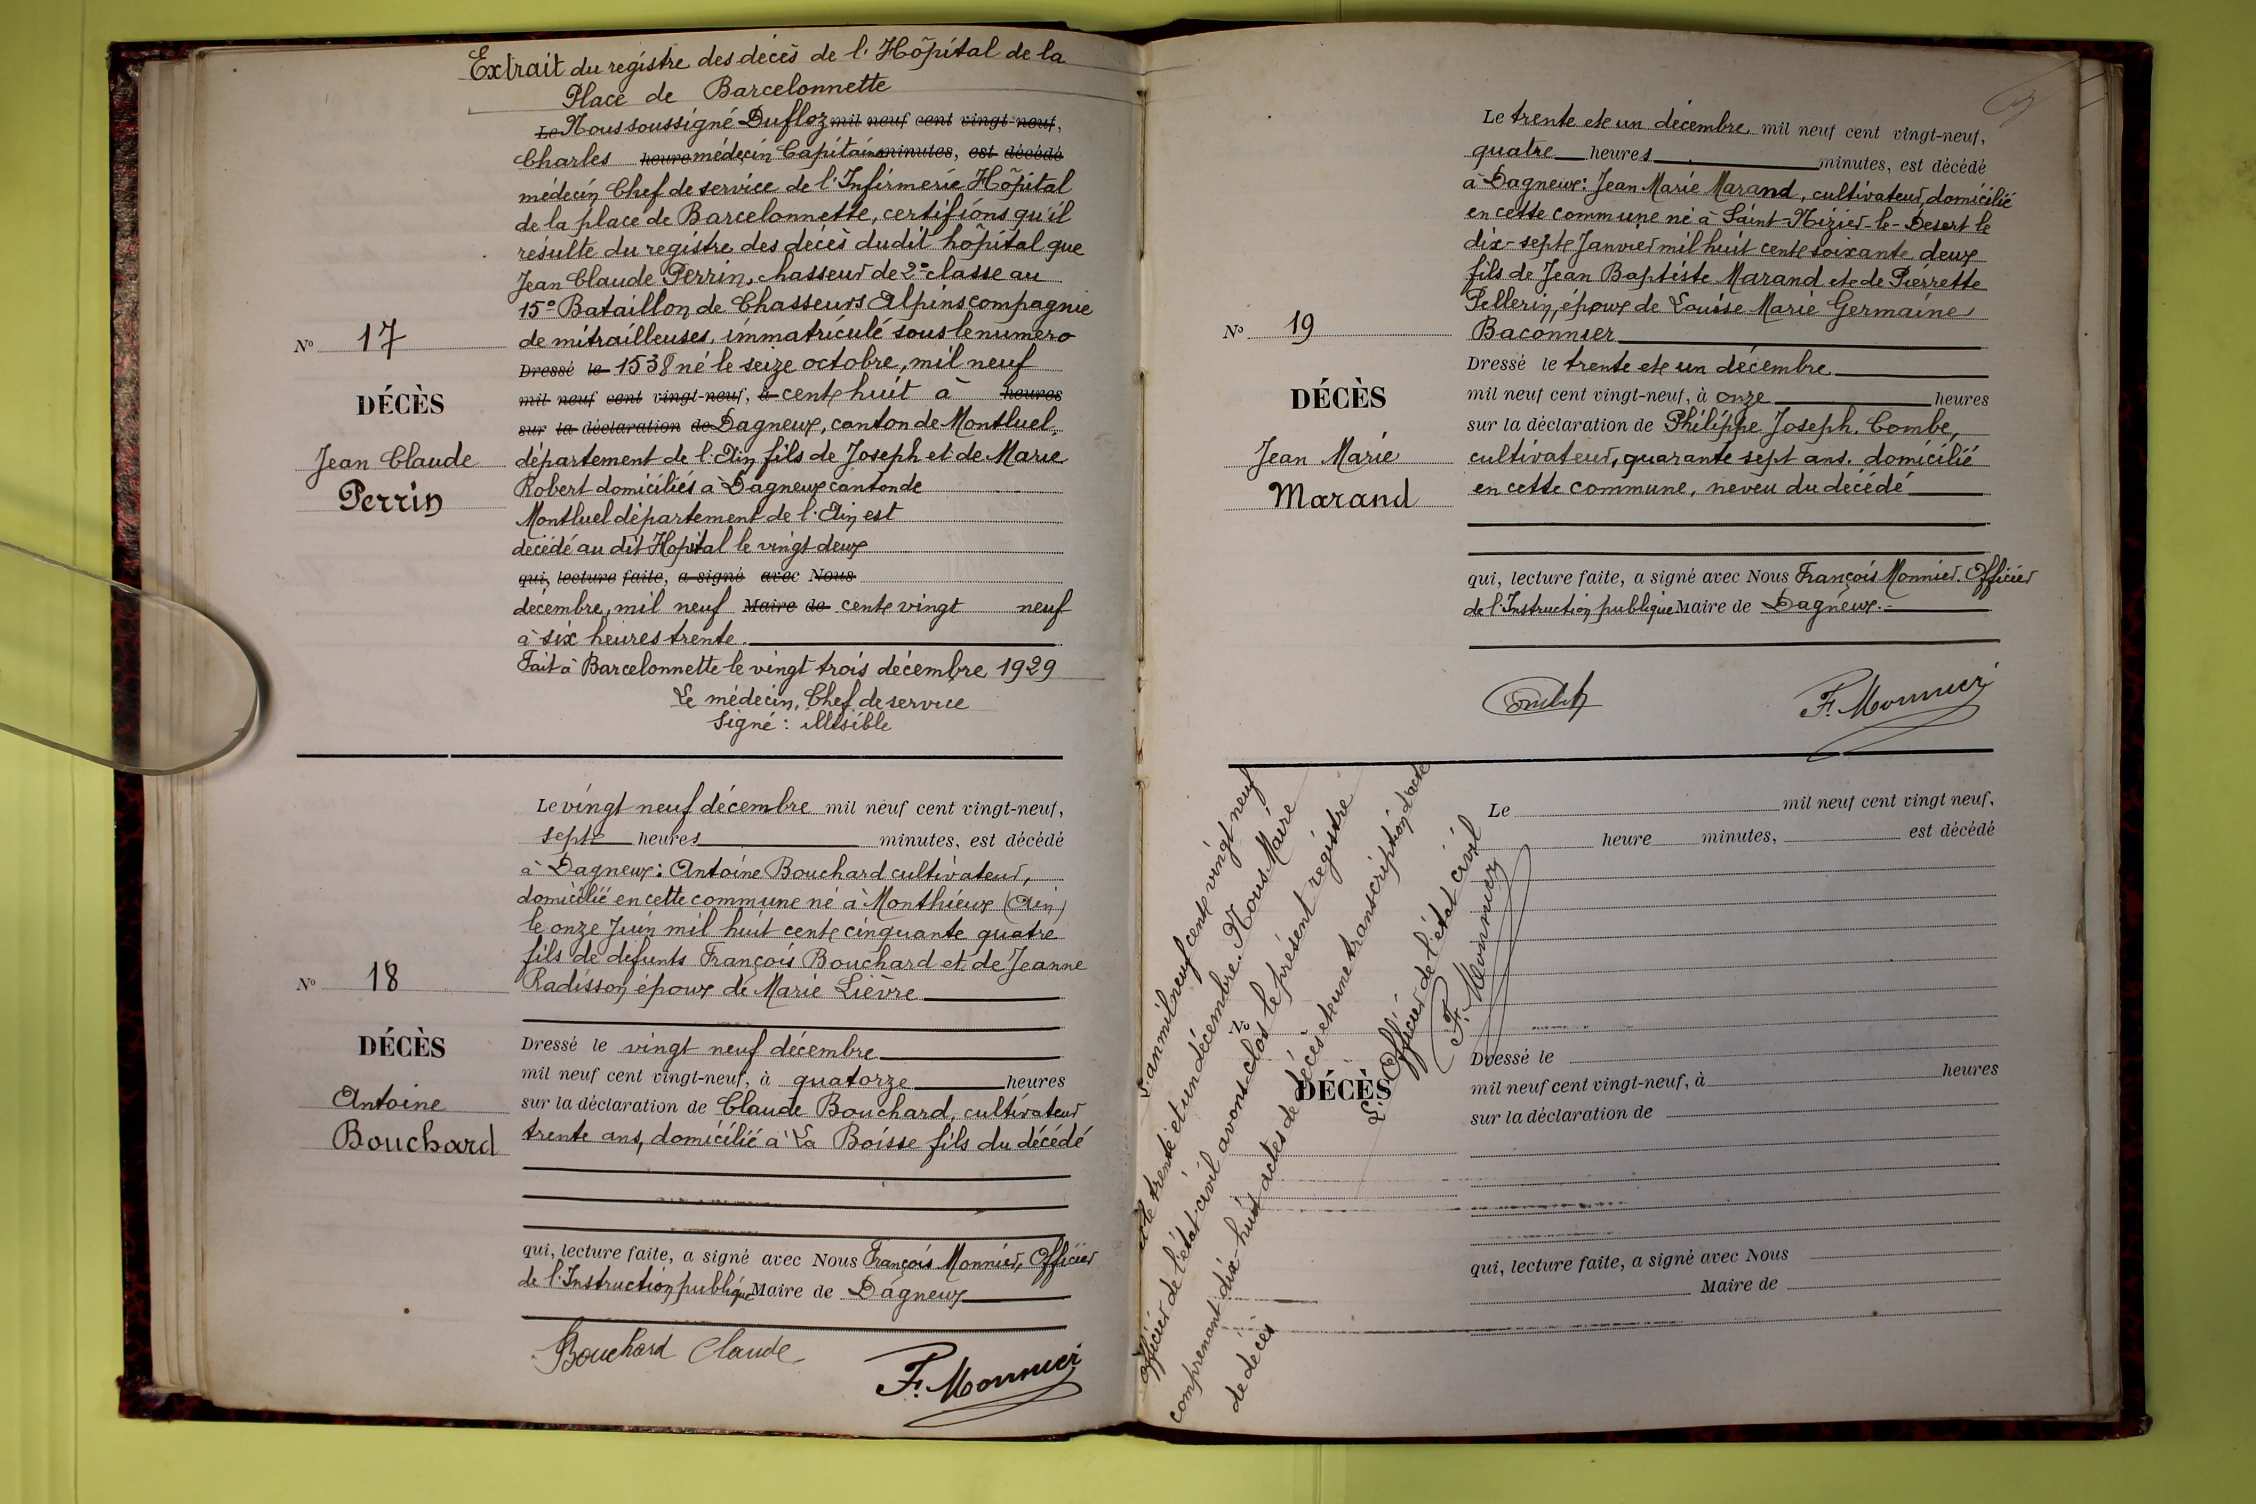 Extrait du registre des décès de l'Hôpital de la
Place de Barcelonnette
Le Nous soussigné Dufloz mil neuf cent vingt-neuf,
Charles heure médecin Capitaine minutes, est décédé
médecin Chef de service de l'Infirmerie Hôpital
de la place de Barcelonnette, certifions qu'il
résulte du registre des décès dudit hôpital que
Jean Claude Perrin, chasseur de 2e classe au
15e Bataillon de Chasseurs Alpins compagnie
de mitrailleuses, immatriculé sous le numéro
Dressé le 1538 né le seize octobre, mil neuf
mil neuf cent vingt-neuf, à cent huit à heures
sur la déclaration de Dagneux, canton de Montluel,
département de l'Ain fils de Joseph et de Marie
Robert domiciliés à Dagneux canton de
Montluel département de l'Ain est
décédé au dit Hopital le vingt deux
qui, lecture faite, a signé avec Nous
décembre, mil neuf Maire de cent vingt neuf
à six heures trente
Fait à Barcelonnette le vingt trois décembre 1929
Le médecin, Chef de service
Signé : illisible
No 17
DÉCÈS
Jean Claude
Perrin
Le vingt neuf décembre mil neuf cent vingt-neuf,
sept heures minutes, est décédé
à Dagneux : Antoine Bouchard cultivateur,
domicilié en cette commune né à Monthieux (Ain)
le onze Juin mil huit cent cinquante quatre
fils de défunts François Bouchard et de Jeanne
Radisson, époux de Marie Lièvre
Dressé le vingt neuf décembre
mil neuf cent vingt-neuf, à quatorze heures
sur la déclaration de Claude Bouchard, cultivateur
trente ans, domicilié à La Boisse fils du décédé
qui, lecture faite, a signé avec Nous François Monnier, Officier
de l'Instruction publique Maire de Dagneux
Bouchard Claude
F. Monnier
No 18
DÉCÈS
Antoine
Bouchard
Le trente et un décembre mil neuf cent vingt-neuf,
quatre heures minutes, est décédé
à Dagneux : Jean Marie Marand, cultivateur, domicilié
en cette commune né à Saint-Nizier-le-Desert le
dix-sept Janvier mil huit cent soixante deux
fils de Jean Baptiste Marand et de Pierrette
Pellerin, époux de Louise Marie Germaine
Baconnier
Dressé le trente et un décembre
mil neuf cent vingt-neuf, à onze heures
sur la déclaration de Philippe Joseph Combe,
cultivateur, quarante sept ans, domicilié
en cette commune, neveu du décédé
qui, lecture faite, a signé avec Nous François Monnier. Officier
de l'Instruction publique Maire de Dagneux.
F. Monnier
No 19
DÉCÈS
Jean Marie
Marand
L'an mil neuf cent vingt neuf
et le trente et un décembre. Nous Maire
officier de l'état civil avons clos le présent registre
comprenant dix-huit actes de décès et une transcription d'acte
de décès
L'Officier de l'état civil
F. Monnier
Le mil neuf cent vingt neuf,
heure minutes, est décédé
No
DÉCÈS
Dressé le
mil neuf cent vingt-neuf, à heures
sur la déclaration de
qui, lecture faite, a signé avec Nous
Maire de